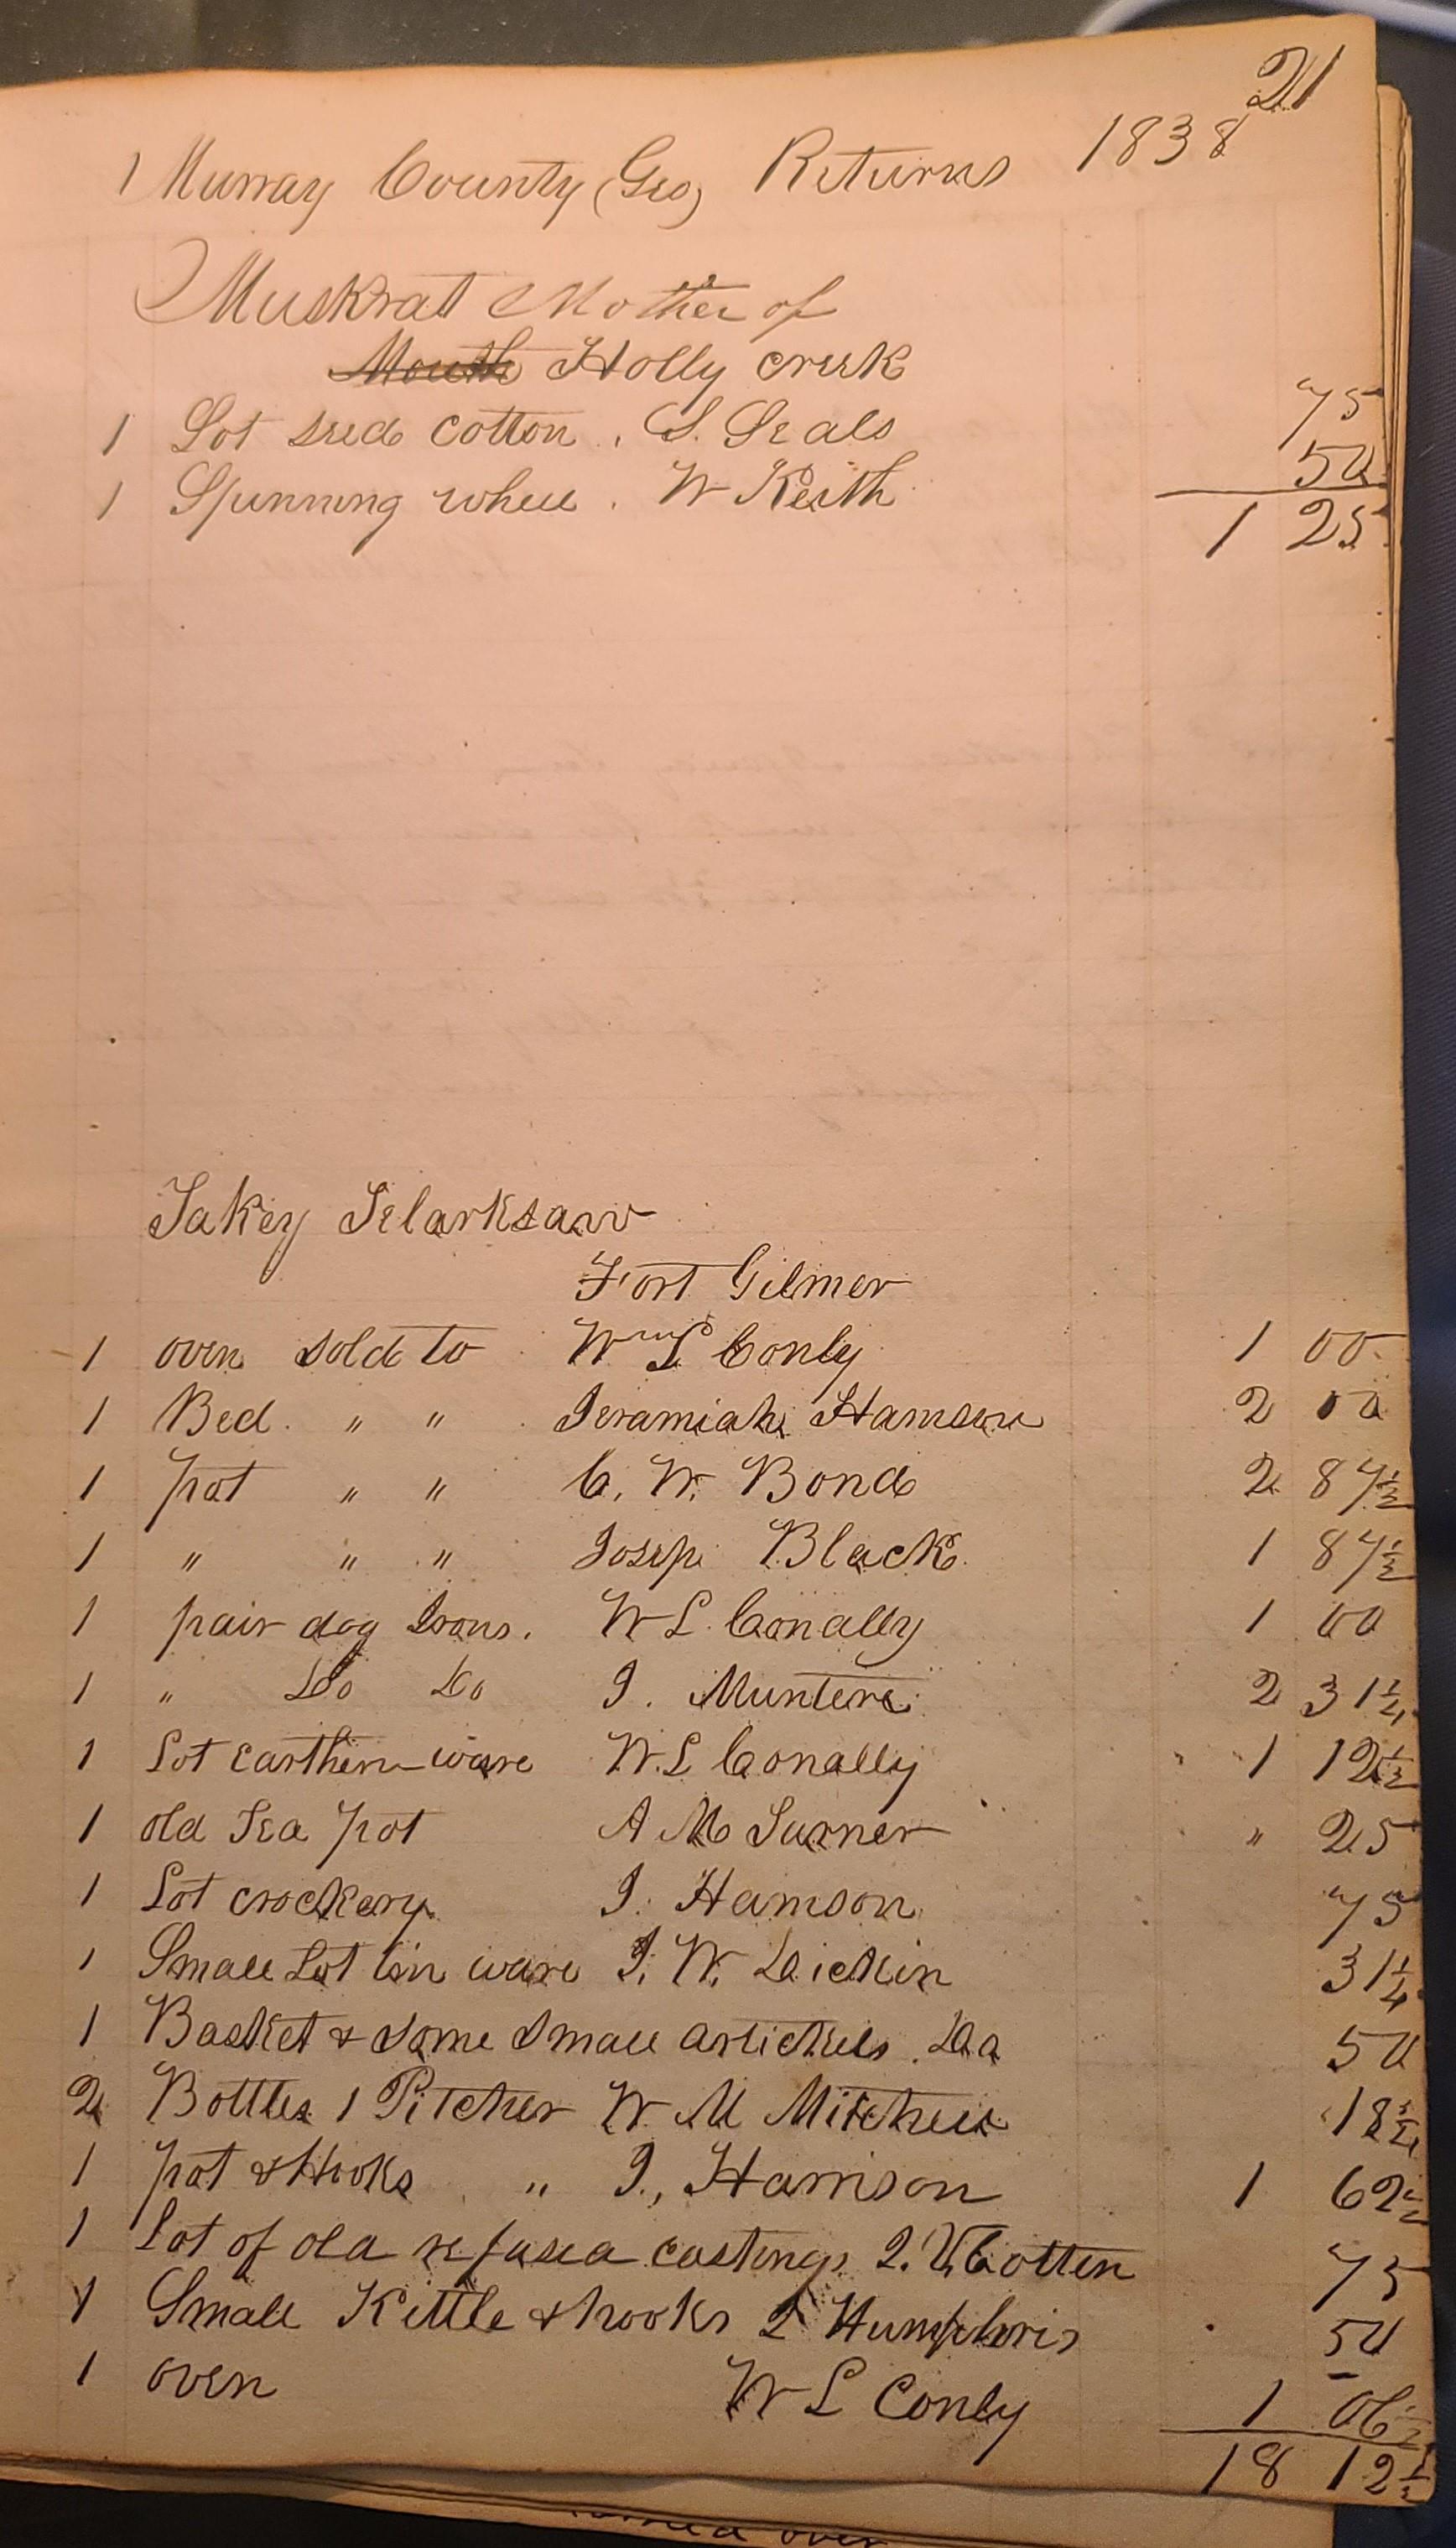 21
1 Murray County (Geo) Returns 1838
Muskrat Mother of
Mouth Holly creek
1 Lot seed cotton . S. Seals 75
1 Spinning wheel . W Keith 50
1 25
Takey Telarksaw
Fort Gilmer
1 oven sold to Wm L Conly 1 00
1 Bed . " " . Jeramiah Hamson 2 00
1 pot " " C. W. Bond 2 87½
1 " " " Josep Black 1 87½
1 pair dog Irons. W L Conally 1 00
1 " Do Do J. Muntere 2 31¼
1 Lot earthen-ware W. L Conally 1 12½
1 old Tea pot A M Turner " 25
1 Lot crockery J. Hamson 75
1 Small Lot tin ware J. W. 31¼
1 Basket & some small artickels . Do 50
2 Bottles 1 Pitcher W M Mitchell 18¾
1 pot & Hooks " J., Harrison 1 62½
1 Lot of old refused castings Cotten 75
1 Small Kittle & hooks Humphris 50
1 oven W L Conly 1 06
18 12½
over